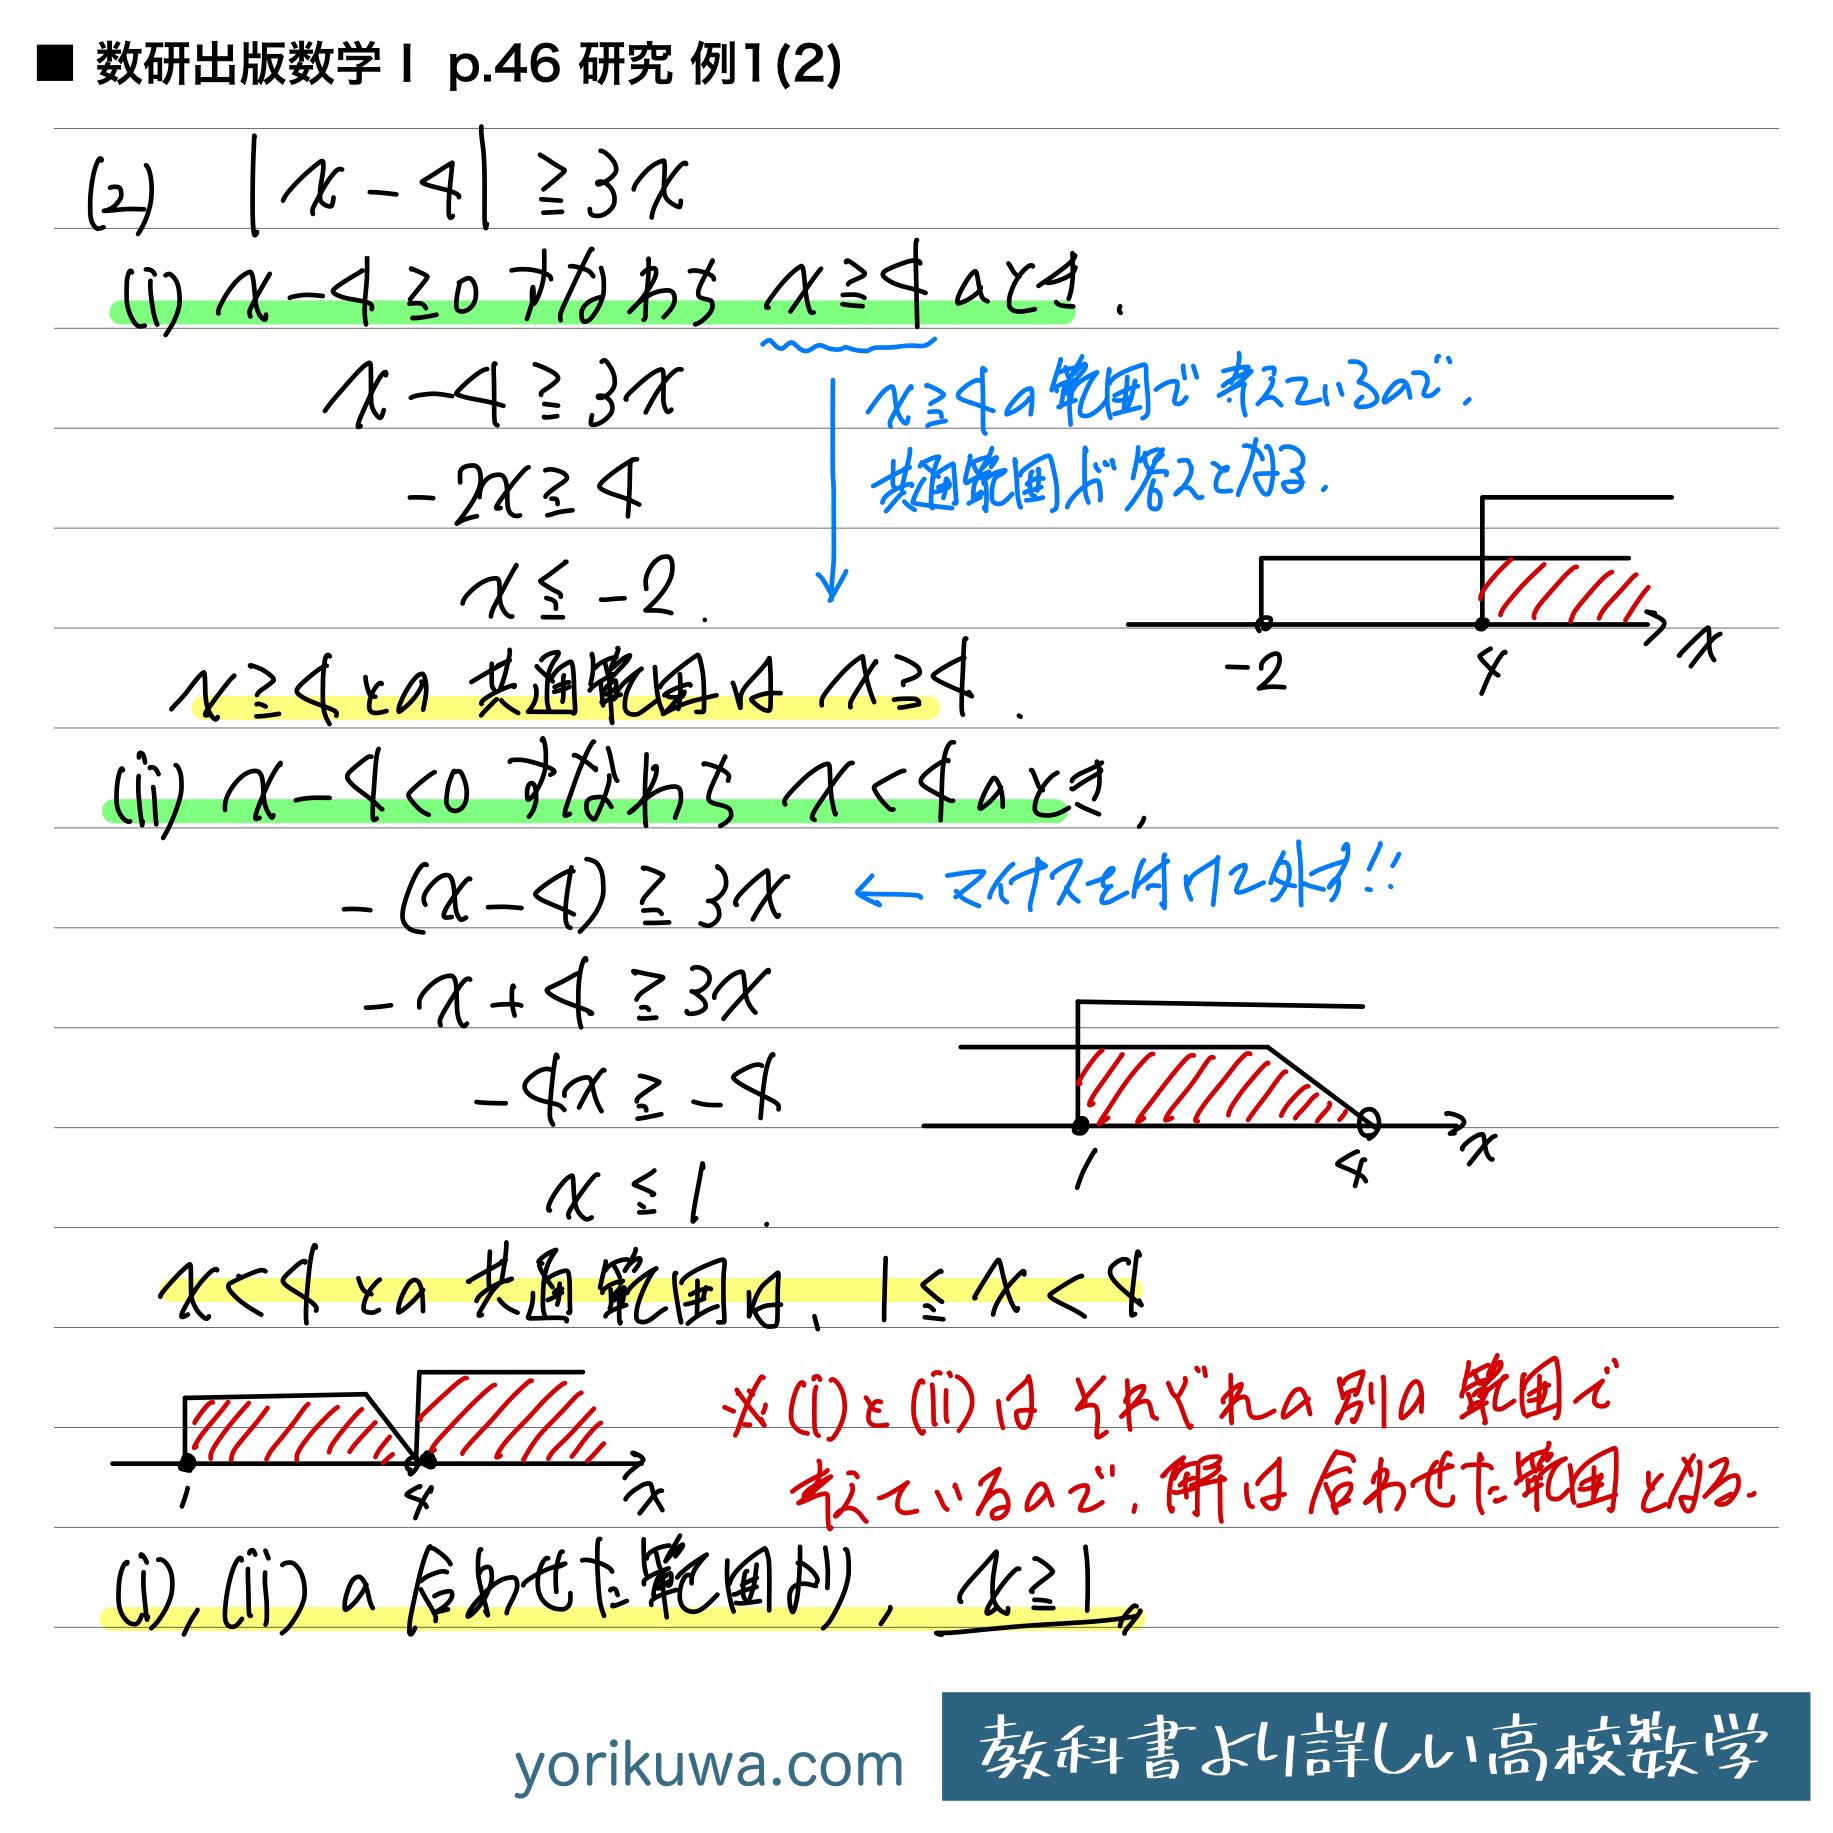 ■ 数研出版数学Ⅰ p.46 研究 例1(2)
(2) |x-4| ≧ 3x
(i) x-4≧0 すなわち x≧4 のとき,
x-4≧3x
x≧4の範囲で考えているので,
-2x≧4
共通範囲が答えとなる.
x≦-2.
-2 4 x
x≧4との共通範囲は x≧4.
(ii) x-4<0 すなわち x<4 のとき,
-(x-4)≧3x ← マイナスを付けて外す!!
-x+4≧3x
-4x≧-4
1 4 x
x≦1.
x<4との共通範囲は, 1≦x<4
※(i)と(ii)はそれぞれの別の範囲で
考えているので, 解は合わせた範囲となる.
1 4 x
(i), (ii)の合わせた範囲より, x≧1〃
yorikuwa.com
教科書より詳しい高校数学